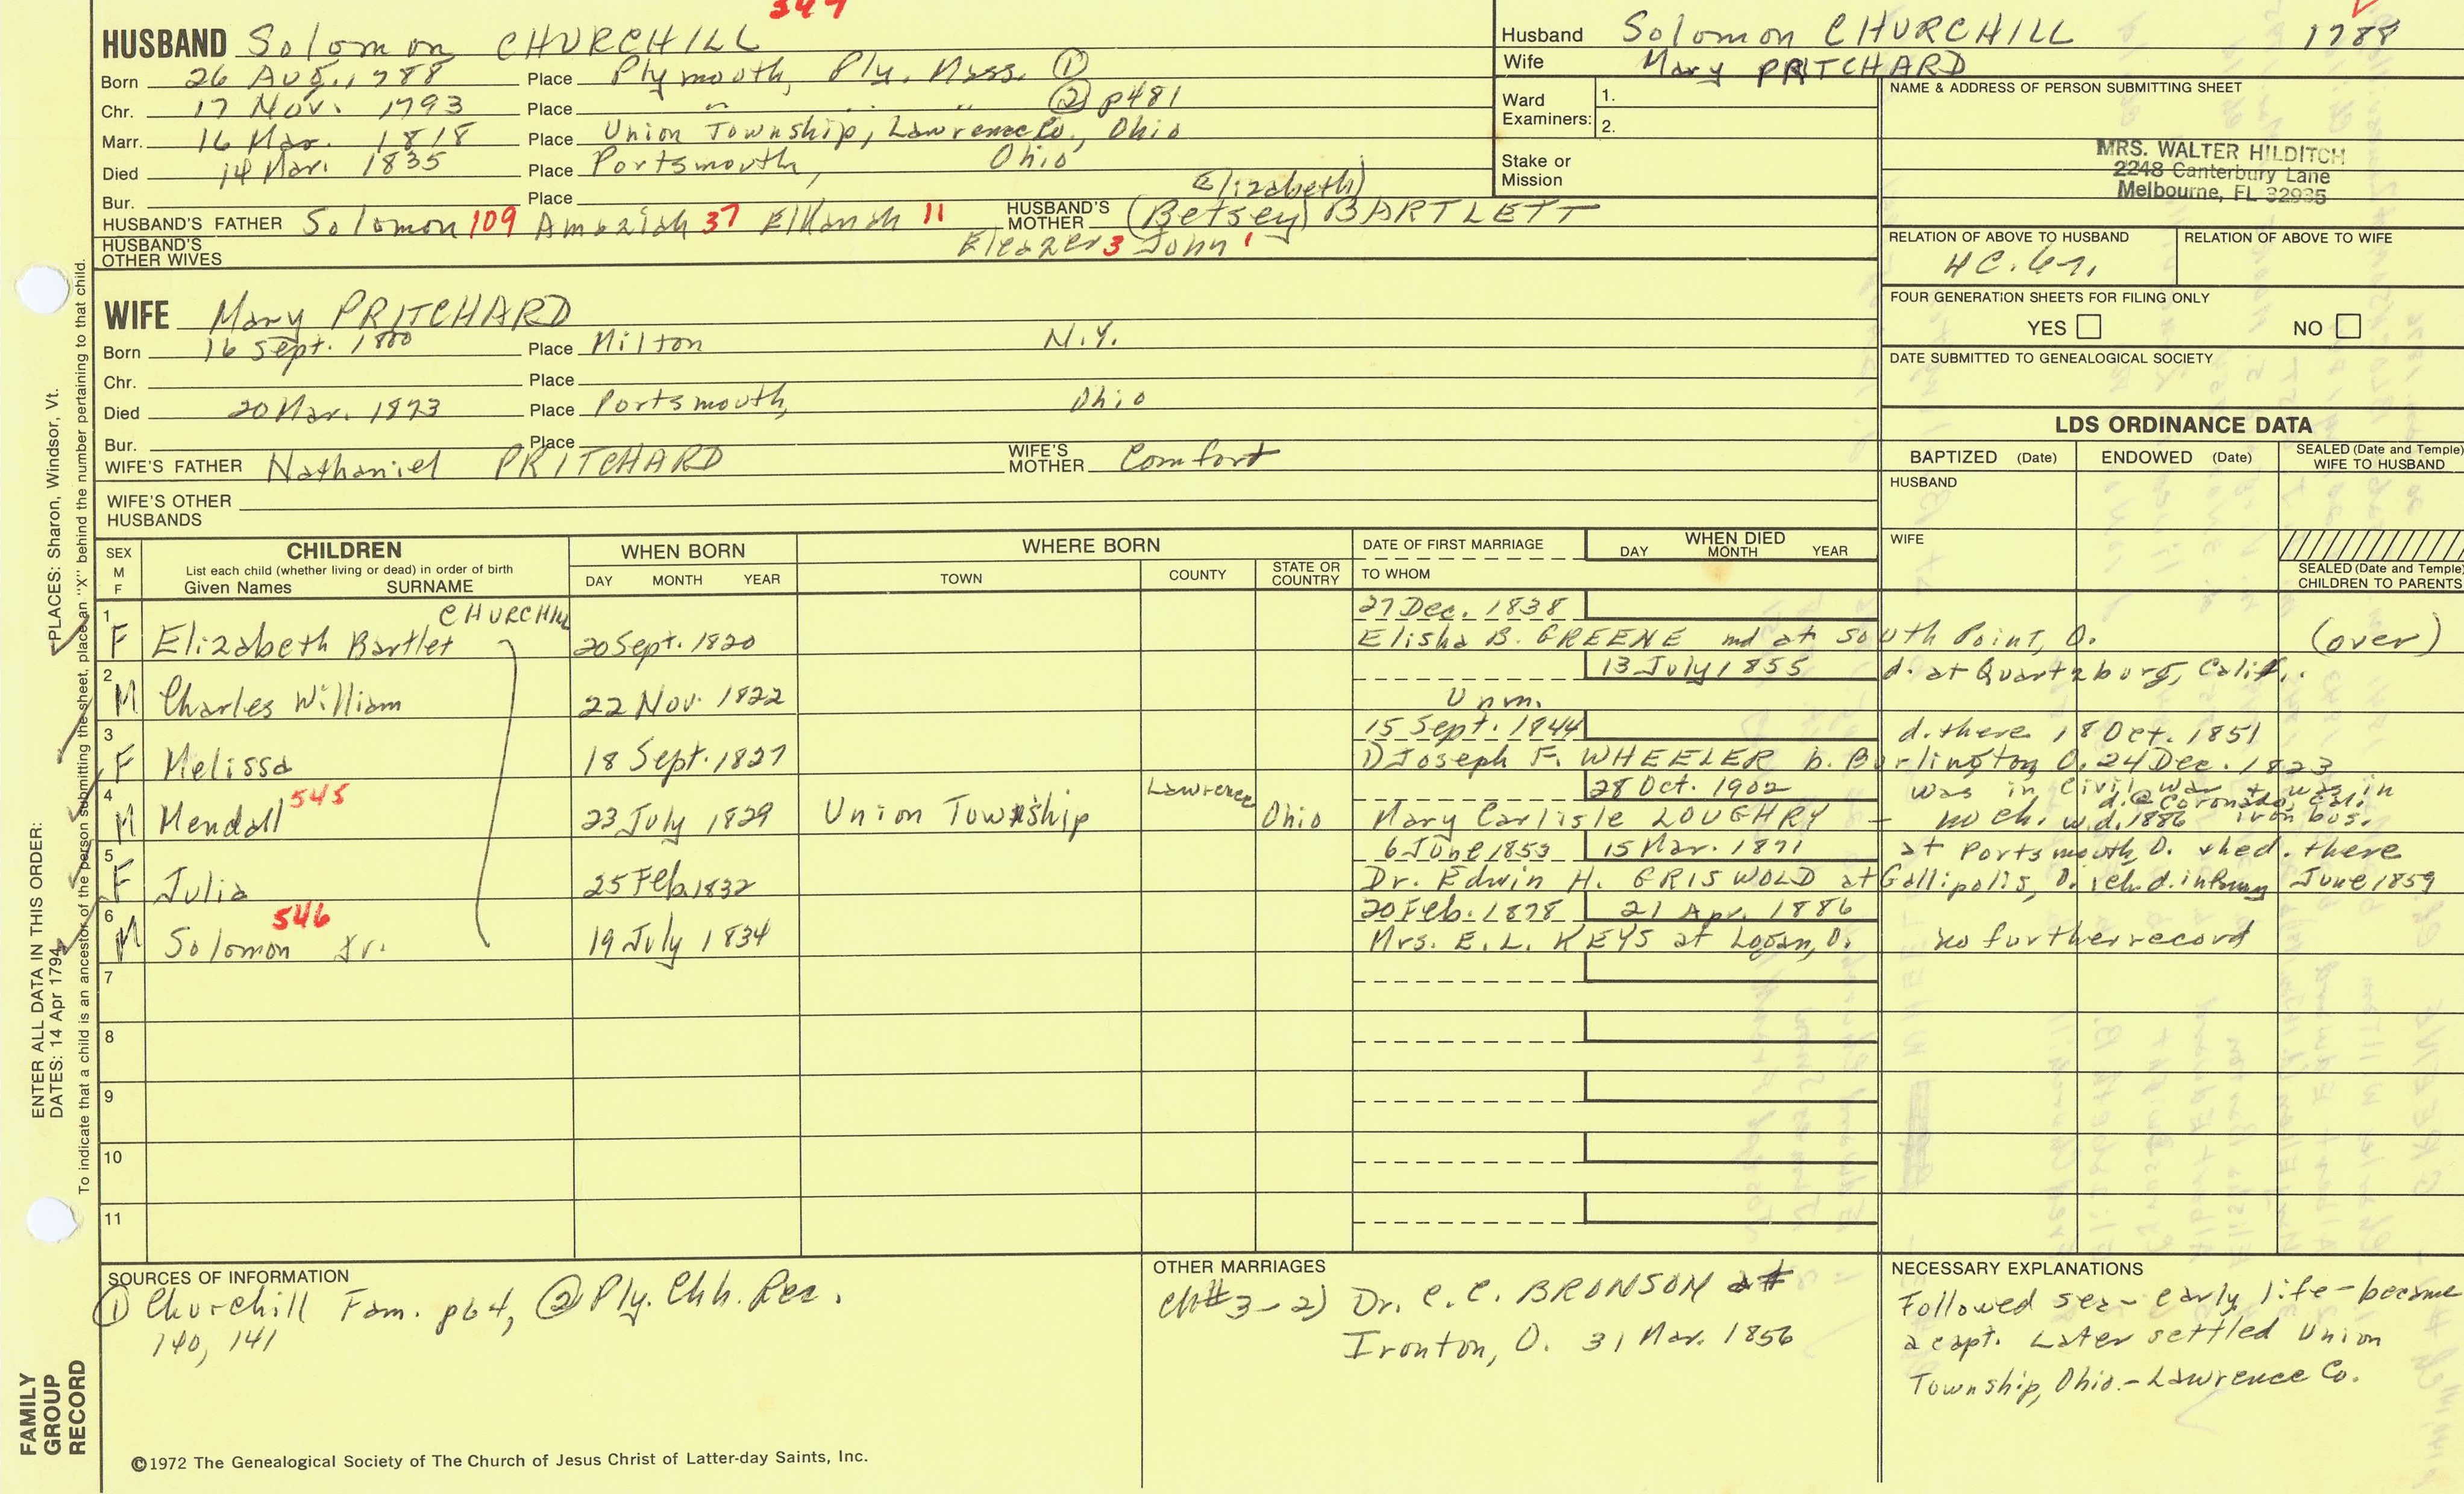 HUSBAND Solomon CHURCHILL
Born 26 Aug. 1788 Place Plymouth, Ply. Mass. ①
Chr. 17 Nov. 1793 Place " " " ② p481
Marr. 16 Mar. 1818 Place Union Township, Lawrence Co., Ohio
Died 14 Mar. 1835 Place Portsmouth, Ohio
Bur. Place
Elizabeth)
HUSBAND'S FATHER Solomon 109 Amaziah 37 Elkanah 11 HUSBAND'S MOTHER (Betsey) BARTLETT
Eleazer 3 John 1
HUSBAND'S OTHER WIVES
Husband Solomon CHURCHILL 1788
Wife Mary PRITCHARD
Ward Examiners: 1.
2.
Stake or Mission
NAME & ADDRESS OF PERSON SUBMITTING SHEET
MRS. WALTER HILDITCH
2248 Canterbury Lane
Melbourne, FL 32935
RELATION OF ABOVE TO HUSBAND RELATION OF ABOVE TO WIFE
FOUR GENERATION SHEETS FOR FILING ONLY
YES NO
DATE SUBMITTED TO GENEALOGICAL SOCIETY
WIFE Mary PRITCHARD
Born 16 Sept. 1800 Place Milton N.Y.
Chr. Place
Died 20 Mar. 1873 Place Portsmouth, Ohio
Bur. Place
WIFE'S FATHER Nathaniel PRITCHARD WIFE'S MOTHER Comfort
WIFE'S OTHER HUSBANDS
LDS ORDINANCE DATA
BAPTIZED (Date) ENDOWED (Date) SEALED (Date and Temple) WIFE TO HUSBAND
HUSBAND
WIFE
SEALED (Date and Temple) CHILDREN TO PARENTS
SEX M F CHILDREN List each child (whether living or dead) in order of birth Given Names SURNAME
WHEN BORN DAY MONTH YEAR
WHERE BORN TOWN COUNTY STATE OR COUNTRY
DATE OF FIRST MARRIAGE TO WHOM
WHEN DIED DAY MONTH YEAR
CHURCHILL 27 Dec. 1838
1 F Elizabeth Bartlet 20 Sept. 1820 Elisha B. GREENE md at South Point, O. (over)
13 July 1855 d. at Quartzburg, Calif.
2 M Charles William 22 Nov. 1822 Unm.
15 Sept. 1844 d. there 18 Oct. 1851
3 F Melissa 18 Sept. 1827 1) Joseph F. WHEELER b. Burlington O. 24 Dec. 1823
28 Oct. 1902 was in Civil War + was in
d. @ Coronado, Cal.
4 M Mendall 545 23 July 1829 Union Township Lawrence Ohio Mary Carlisle LOUGHRY - no ch. w.d. 1886 iron bus.
6 June 1853 15 Mar. 1871 at Portsmouth, O. + hed. there
5 F Julia 25 Feb. 1832 Dr. Edwin H. GRISWOLD at Gallipolis, O. 1 ch. d. infancy June 1859
20 Feb. 1878 21 Apr. 1886
6 M Solomon Jr. 546 19 July 1834 Mrs. E. L. KEYS at Logan, O. no further record
7
8
9
10
11
SOURCES OF INFORMATION
① Churchill Fam. p64, ② Ply. Chh. Rec.
140, 141
OTHER MARRIAGES
Ch# 3 - 2) Dr. C. C. BRONSON at
Ironton, O. 31 Mar. 1856
NECESSARY EXPLANATIONS
Followed sea - early life - became
a capt. Later settled Union
Township, Ohio. - Lawrence Co.
©1972 The Genealogical Society of The Church of Jesus Christ of Latter-day Saints, Inc.
FAMILY GROUP RECORD
ENTER ALL DATA IN THIS ORDER:
DATES: 14 Apr 1794
PLACES: Sharon, Windsor, Vt.
To indicate that a child is an ancestor of the person submitting the sheet, place an "X" behind the number pertaining to that child.